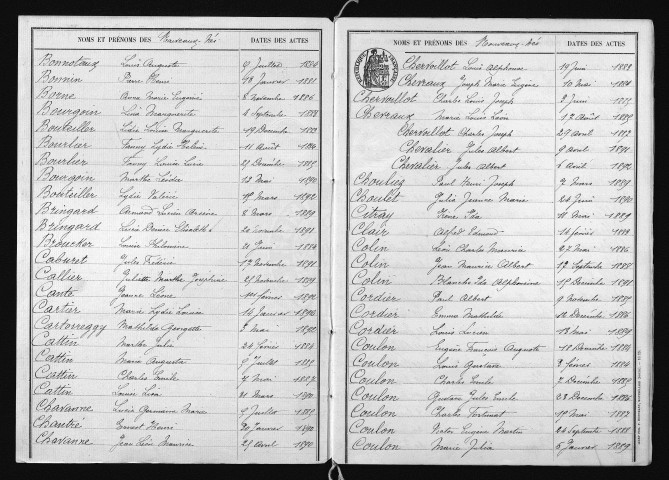 NOMS ET PRÉNOMS DES Nouveaux-Nés DATES DES ACTES
Bonnotaux Louis Auguste 9 Juillet 1884
Bonnin Pierre Henri 18 Janvier 1881
Borne Anna Marie Eugénie 8 Novembre 1886
Bourgoin Lina Marguerite 4 Septembre 1888
Bouteiller Lydie Louise Marguerite 19 Décembre 1883
Bourlier Fanny Lydie 11 Août 1884
Bourlier Fanny Louise 25 Décembre 1885
Bourgoin Marthe 12 Mai 1890
Bouteiller Lydie Valérie Mars 1892
Bringard Armand Lucien 8 Mars 1889
Bringard Lucie 20 1891
Broucker Louise 21 Juin 1884
Cabaret Jules Frédéric Novembre 1891
Callier Juliette Marthe Joséphine 25 Novembre 1889
Cante Jeanne Léonie 1892
Cartier Marie Lydie Louise 16 Janvier 1892
Cartoreggy Mathilde Georgette Mai 1892
Cattin Marthe Julie 24 Février 1884
Cattin Maria Augusta 9 Juillet 1885
Cattin Charles Emile 7 Mai 1887
Cattin Louise 21 Mars 1890
Chavanne Lucie Germaine Marie 9 Juillet 1885
Chautré Ernest Henri 20 Janvier 1890
Chavanne Jean Léon Maurice 25 Avril 1890
NOMS ET PRÉNOMS DES Nouveaux-Nés DATES DES ACTES
Chervoillot Louis Alphonse 19 Juin 1883
Chevraux Joseph Marie Eugène 10 Mai 1884
Chervoillot Charles Louis Joseph 2 Juin 1885
Chevraux Marie Louis Léon 12 Août 1889
Chervoillot Charles Joseph 29 Avril 1892
Chevalier Jules Albert 9 Avril 1891
Chevalier Jules Albert 6 Août 1892
Chouliez Paul Henri Joseph 7 Mars 1889
Choulet Julia Jeanne Marie 24 Juin 1890
Citray Irène 18 Mai 1889
Clair Alfred Edmond 14 Février 1888
Colin Léon Charles Maurice 27 Mai 1886
Colin Jean Maurice Albert Septembre 1888
Colin Blanche Ida Alphonsine 15 Décembre 1891
Cordier Paul Albert 9 Novembre 1885
Cordier Emma Mathilde 12 Décembre 1886
Cordier Louis Lucien 13 Mai 1889
Coulon Eugène François Auguste 18 Décembre 1884
Coulon Louis Gustave 2 Février 1884
Coulon Charles Emile 7 Décembre 1885
Coulon Gustave Jules Emile 28 Décembre 1886
Coulon Charles Fortunat 19 Mai 1887
Coulon Victor Eugène Martin 24 Septembre 1888
Coulon Marie Julia 5 Janvier 1889